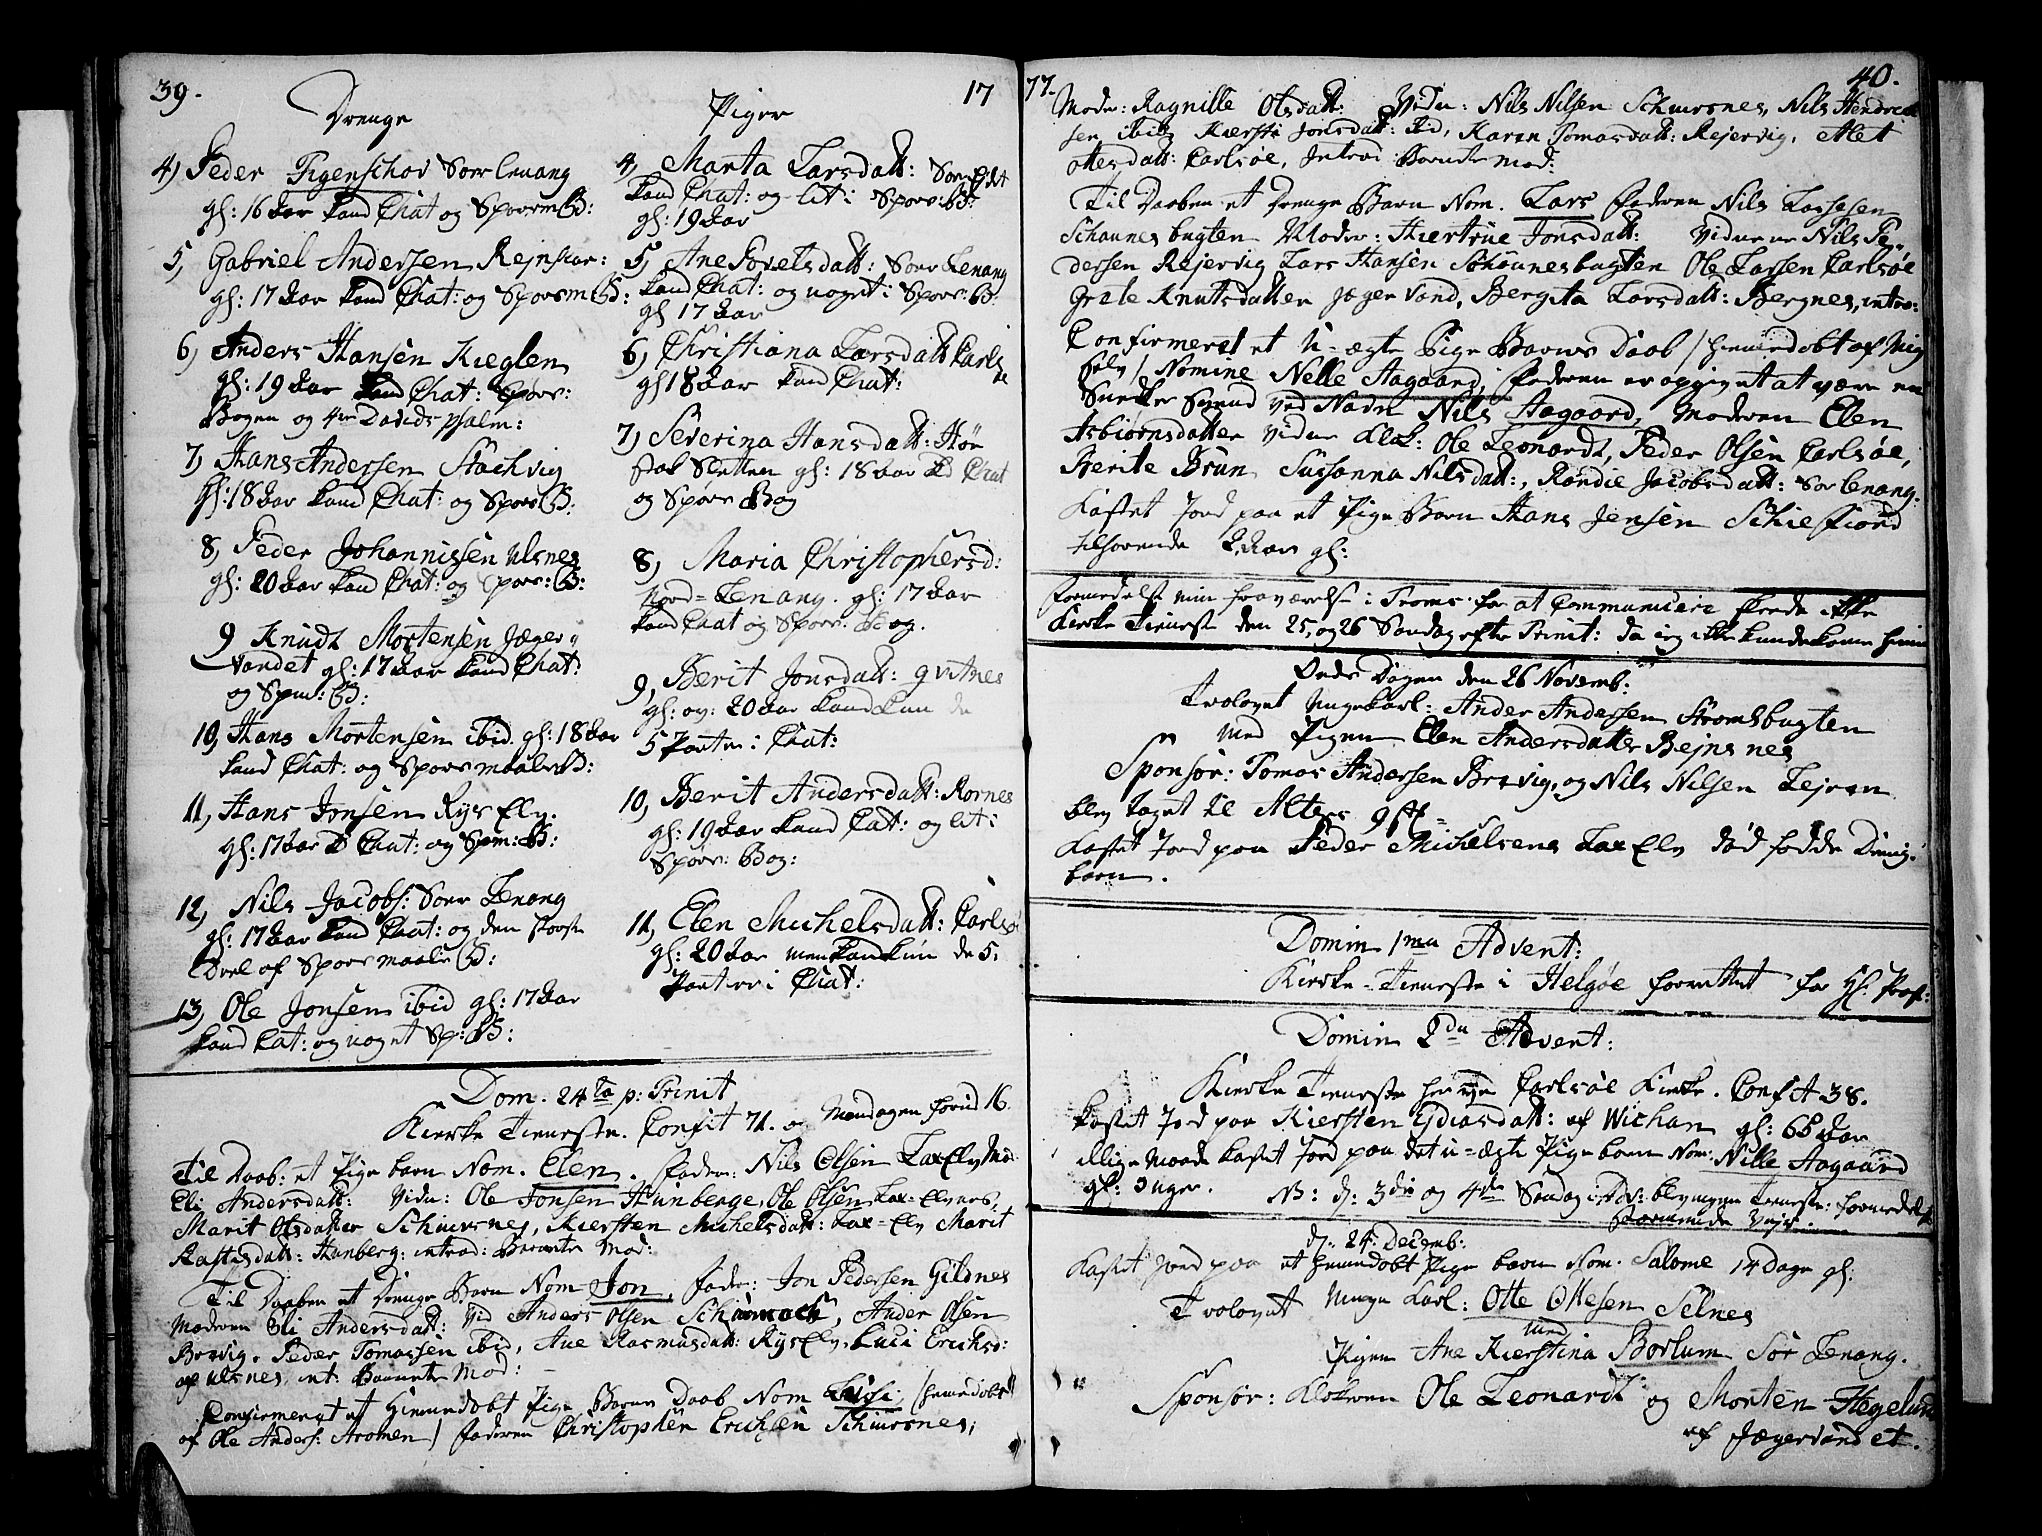 39.
17
Drenge
4) Peder Figenschov Sørlenang
gl: 16 Aar kand Chat og SpørsmB:
5, Gabriel Andersen Rejnskar:
gl: 17 Aar kand Chat: og SpørsmB:
6) Anders Hansen Kieglen
gl: 19 Aar kand Chat: Spørs:
Bogen og 4re Davids psalm:
7) Hans Andersen Stachvig
gl: 18 Aar kand Chat: og SpørsB:
8, Peder Johannissen Ulsnes
gl: 20 Aar kand Chat: og Spørs: B:
9 Knudt Mortensen Jæger
Vandet gl: 17 Aar kand Chat:
og Spm: B:
10, Hans Mortensen ibid. gl: 18 Aar
kand Chat: og SpørsmaalsB:
11, Hans Jonsen Rys Elv.
gl: 17 Aar K Chat: og Spm: B:
12, Nils Jacobs: Sørlenang
gl: 17 Aar kand Chat: og den største
Deel af Spørsmaals B:
13, Ole Jonsen ibid gl: 17 Aar
kand Cat: og noget Sp: B:
Piger
4, Marta Larsdatt: Sør
kand Chat: og lit i Spørs: B:
gl: 19 Aar
5, Ane Povelsdatt: Sørlenang
kand Chat: og noget i Spørs: B:
gl 17 Aar
6, Christiana Larsdatt Carls
gl 18 Aar kand Chat:
7) Severina Hansdatt: Hør
stad Sletten gl: 18 Aar K Chat
og Spørs Bog
8, Maria Christophersd:
Nord-Lenang. gl: 17 Aar
kand Chat og Spørs: Bog.
9, Berit Jonsdatt: Gvitnes
gl: og: 20 Aar kand kun de
5 Parter i Chat:
10, Berit Andersdatt: Kornes
gl: 19 Aar kand Cat: og lit i
Spørs: Bog:
11, Elen Michelsdatt: Carlsø
gl: 20 Aar men kand kun de 5,
Parter i Chat:
Dom. 24ta p: Trinit
Kirke Tieneste. Confit 71. og Mandagen forud 16.
Til Daab: et Pige barn Nom. Elen. Fader: Nils Olsen LaxElv Mo:
Eli Andersdatt: Vidn: Ole Jonsen Hunberge, Ole Olsen Lax-Elvnes,
Marit Olsdatter Schiursnes, Kiersten Michelsdatt: Lax-Elv Marit
Rastisdatt: Hanberg: introd: Barnets Mod:
Til Daaben et Drenge Barn Nom Jon, Fader: Jon Pedersen Gildnes
Moderen Eli Andersdatt: Vid Anders Olsen, Ander Olsen
Brevig. Peder Tomassen ibid, Ane Rasmusdatt: RysElv, Luci Erichsd:
af Ulsnes, int: Barnets Mod:
Confirmeret et Hiemmedøbt Pige Barns Daab Nom (hiemdøbt
af Ole Anders: Aronen) Faderen Christopher Erichsen Schiursnes;
77.
40.
Moder: Ragnille Olsdatt: Vidn: Nils Nilsen Schiursnes, Nils Hendrich
sen ibid, Kiersti Jonsdatt: ibd, Karen Tomasdatt: Rejervig, Alet
Ottesdatt: Carlsøe, Introd: Barnets Mod:
Til Daaben et Drenge Barn Nom. Lars Faderen Nils Lassesen
Schaunesbugten Moder: Kiertrue Jonsdatt: Vidnerne Nils Pe-
dersen Rejervig Lars Hansen Schaunesbugten Ole Larsen Carlsøe
Grete Knutsdatter Jægervand, Bergita Larsdatt: Bergnes, intro:
Confirmeret et U-ægte Pige Barns Daab / hiemedøbt af Mig
selv / Nomine Nelle Aagaard, Faderen er opgivet at være en
Snedker Svend ved Navn Nils Aagaard, Moderen Elen
Asbiørnsdatter Vidne Klok: Ole Leonardt, Peder Olsen Carlsøe,
Berite Brun Susanna Nilsdatt:, Randie Jacobsdatt: Sørlenang.
Kastet Jord paa et Pige Barn Hans Jensen Schiefiord
tilhørende 2 Aar gl:
Formedelst min fraværelse i Troms for at Communicere skeede ikke
Kirke Tieneste den 25, og 26 Søndag efter Trinit: da jeg ikke kunde komme hiem
Onsdagen den 26 Novemb:
Trolovet Ungekarl: Ander Andersen Strombugten
Med Pigen Elen Andersdatter Bejnesnes
Sponsor: Tomas Andersen Brevig, og Nils Nilsen Lejren
blev taget til Alters 9 st
Kastet Jord paa Peder Michelsens LaxElv død fødde Dreng
barn.
Domin 1ma Advent:
Kirke-Tieneste i Helgøe forrettet for Hr. Prost:
Domin 2da Advent:
Kirke Tieneste her ved Carlsøe Kirke. Confit 38.
Kastet Jord paa Kiersten Esdiasdatt: af Wichan gl: 68 Aar
illige maade kastet Jord paa det u-ægte Pige barn Nom: Nille Aagaard
gl: 3 uger. NB: d: 3die og 4de Søndag i Adv: blev ingen Tieneste formedelst
stormende Vejr.
d: 24: Decemb:
Kastet Jord paa et hiemdøbt Pige barn Nom. Salome 14 Dage gl:
Trolovet Unge Karl: Otte Ottesen Selnes
med
Pigen Ane Kierstina Borlum Sør Lenang.
Sponsor: Klokeren Ole Leonardt og Morten Hegelund
af Jægervandet.